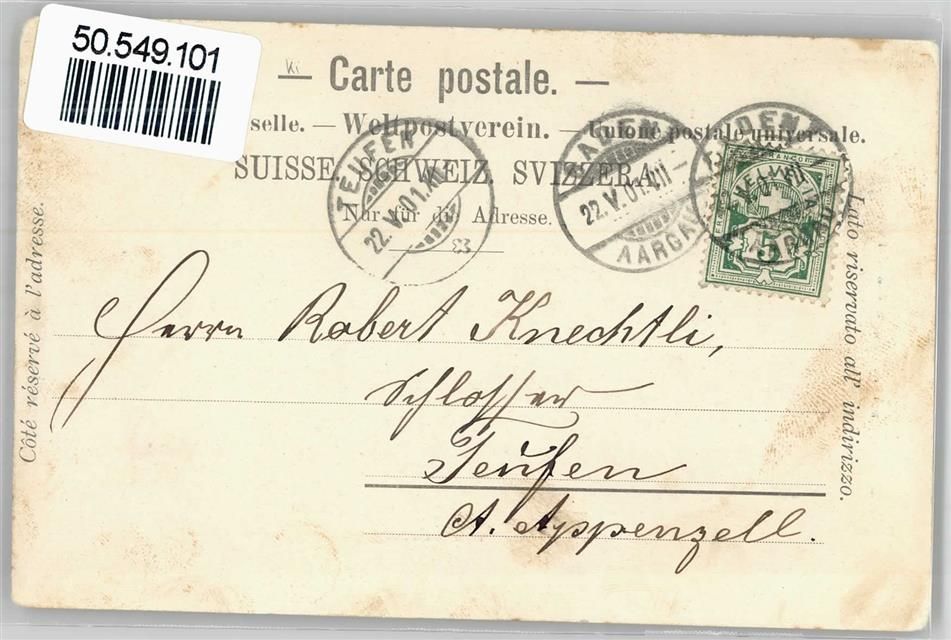 50.549.101
Ki
— Carte postale. —
selle. — Weltpostverein. — Unione postale universale.
SUISSE. SCHWEIZ. SVIZZERA.
Nur für die Adresse.
Côté réservé à l'adresse.
Lato riservato all' indirizzo.
TEUFEN
22.V.01.XI
BADEN
22.V.01.VII
AARGAU
BADEN
AARGAU
FRANCO
HELVETIA
5
Herrn Robert Knechtli,
Schlosser
Teufen
A. Appenzell.